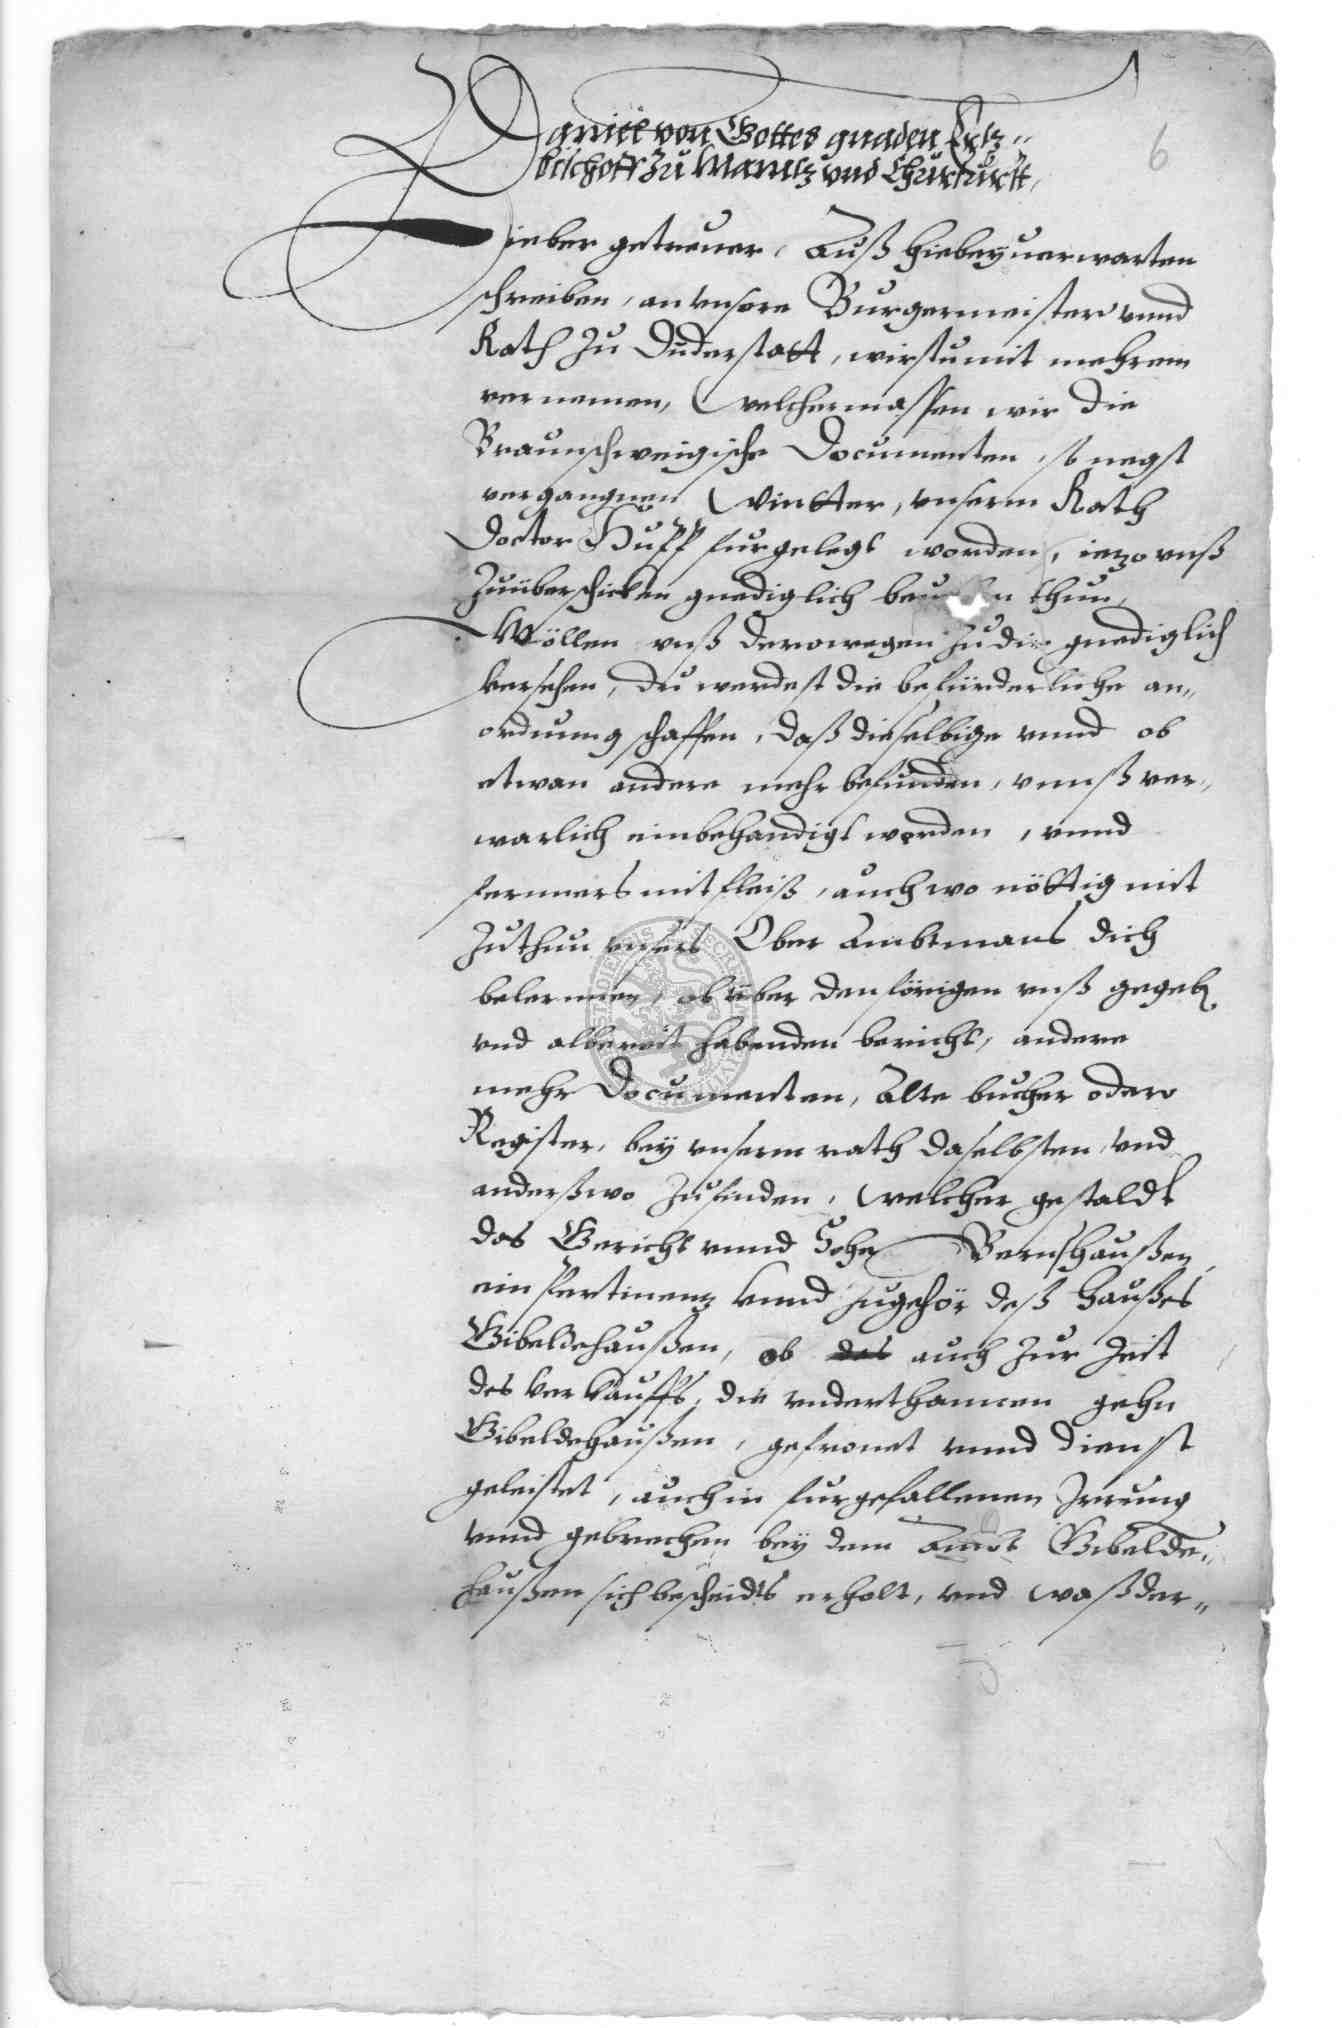 6
Daniel von Gottes gnaden Ertz„
bischoff zu Maintz vnd Churfurst,
Lieber getreuer, Auß hiebeyuerwarten
schreiben, an vnsere Burgermeister vnnd
Rath zu Duderstatt, wirstu mit mehrem
vernemen, Welchermassen wir die
Braunschweigische Documenten, so negst
vergangnen Wintter, vnserm Rath
Doctor Huff furgelegt worden, iezo vnß
Zuüberschicken gnediglich thun,
Wöllen vnß derowegen zu dir gnediglich
versehen, du werdest die befürderliche an„
ordnung schaffen, daß dieselbige vnnd ob
etwan andere mehr befunden, vnnß ver„
warlich einbehandigt werden, vnnd
ferners mit fleiß, auch wo nöttig mit
Zuthun vnsers Ober Ambtmans dich
belernnen, ob über den förigen vnß gegeb
vnd albereit habenden bericht, andere
mehr Documenten, Alte bucher oder
Register, bey vnserm rath daselbsten, vnd
anderßwo zufinden, Welcher gestaldt
das Gericht vnnd Hohe Bernshaußen,
ein Pertinenz vnnd zugehör deß Haußes
Gibeldehaußen, ob das auch zur Zeit
des verkauffs, die vnderthannen gehn
Gibeldehaußen, gefronet vnnd dienst
geleistet, auch in furgefallenen Irrung
vnnd gebrechen bey dem Ambt Gibelde„
haußen sich bescheidts erholt, vnd waß der„